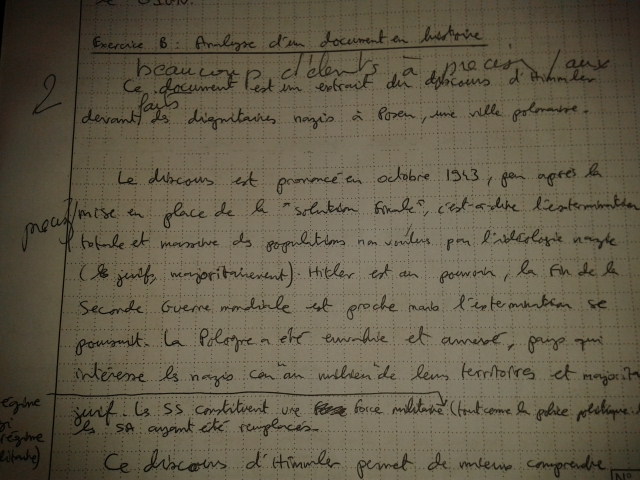 Exercice B : Analyse d'un document en histoire
beaucoup d'élents à préciser / aux
faits
2
Ce document est un extrait du discours d'Himmler
devant des dignitaires nazis à Posen, une ville polonaise.
Le discours est prononcé en octobre 1943, peu après la
mise en place de la "solution finale", c'est-à-dire l'extermination
totale et massive des populations non voulues par l'idéologie nazie
(les juifs, majoritairement). Hitler est au pouvoir, la fin de la
Seconde Guerre mondiale est proche mais l'extermination se
poursuit. La Pologne a été envahie et annexée, pays qui
intéresse les nazis car "au milieu" de leurs territoires et
juif. Les SS constituent une force militaire (tout comme la police politique
les SA ayant été remplacés.
régime
Ce discours d'Himmler permet de mieux comprendre